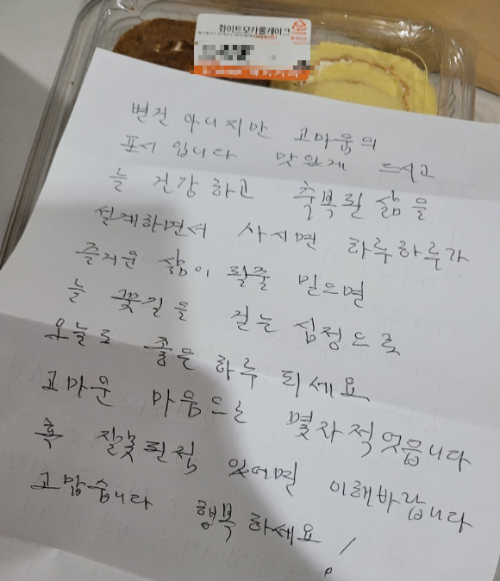 화이트모카롤케이크
변건 아니지만 고마움의
표시 입니다 맛있게 드시고
늘 건강 하고 축복된 삶을
설계하면서 사시면 하루하루가
즐거운 삶이 될줄 믿으면
늘 꽃길을 걷는 심정으로
오늘도 좋은 하루 되세요
고마운 마음으는 몇자 적엇읍니다
혹 잘못된점 있어면 이해바랍니다
고맙습니다 행복 하세요!